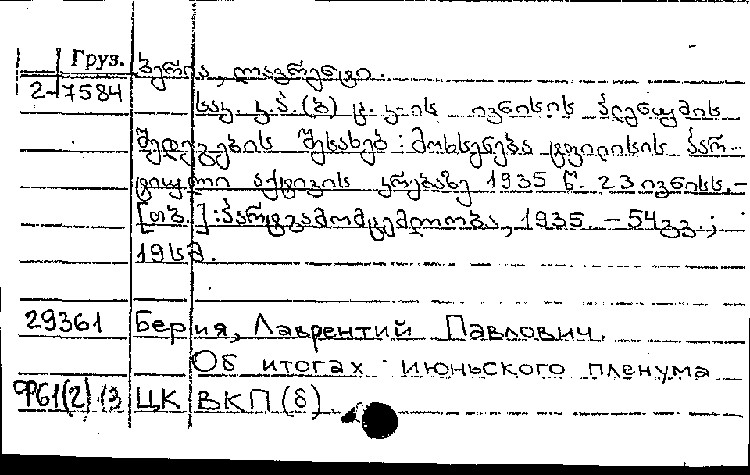 Груз. ბერია, ლავრენტი.
2-7584 საკ. კ.პ.(ბ) ც. კ-ის ივნისის პლენუმის
შედეგების შესახებ : მოხსენება ტფილისის პარ-
ტიული აქტივის კრებაზე 1935 წ. 23 ივნისს.-
[თბ.] : პარტგამომცემლობა, 1935. - 54 გვ. ;
19 სმ.
29361 Берия, Лаврентий Павлович.
Об итогах июньского пленума
9Р61(2)13 ЦК ВКП(б)